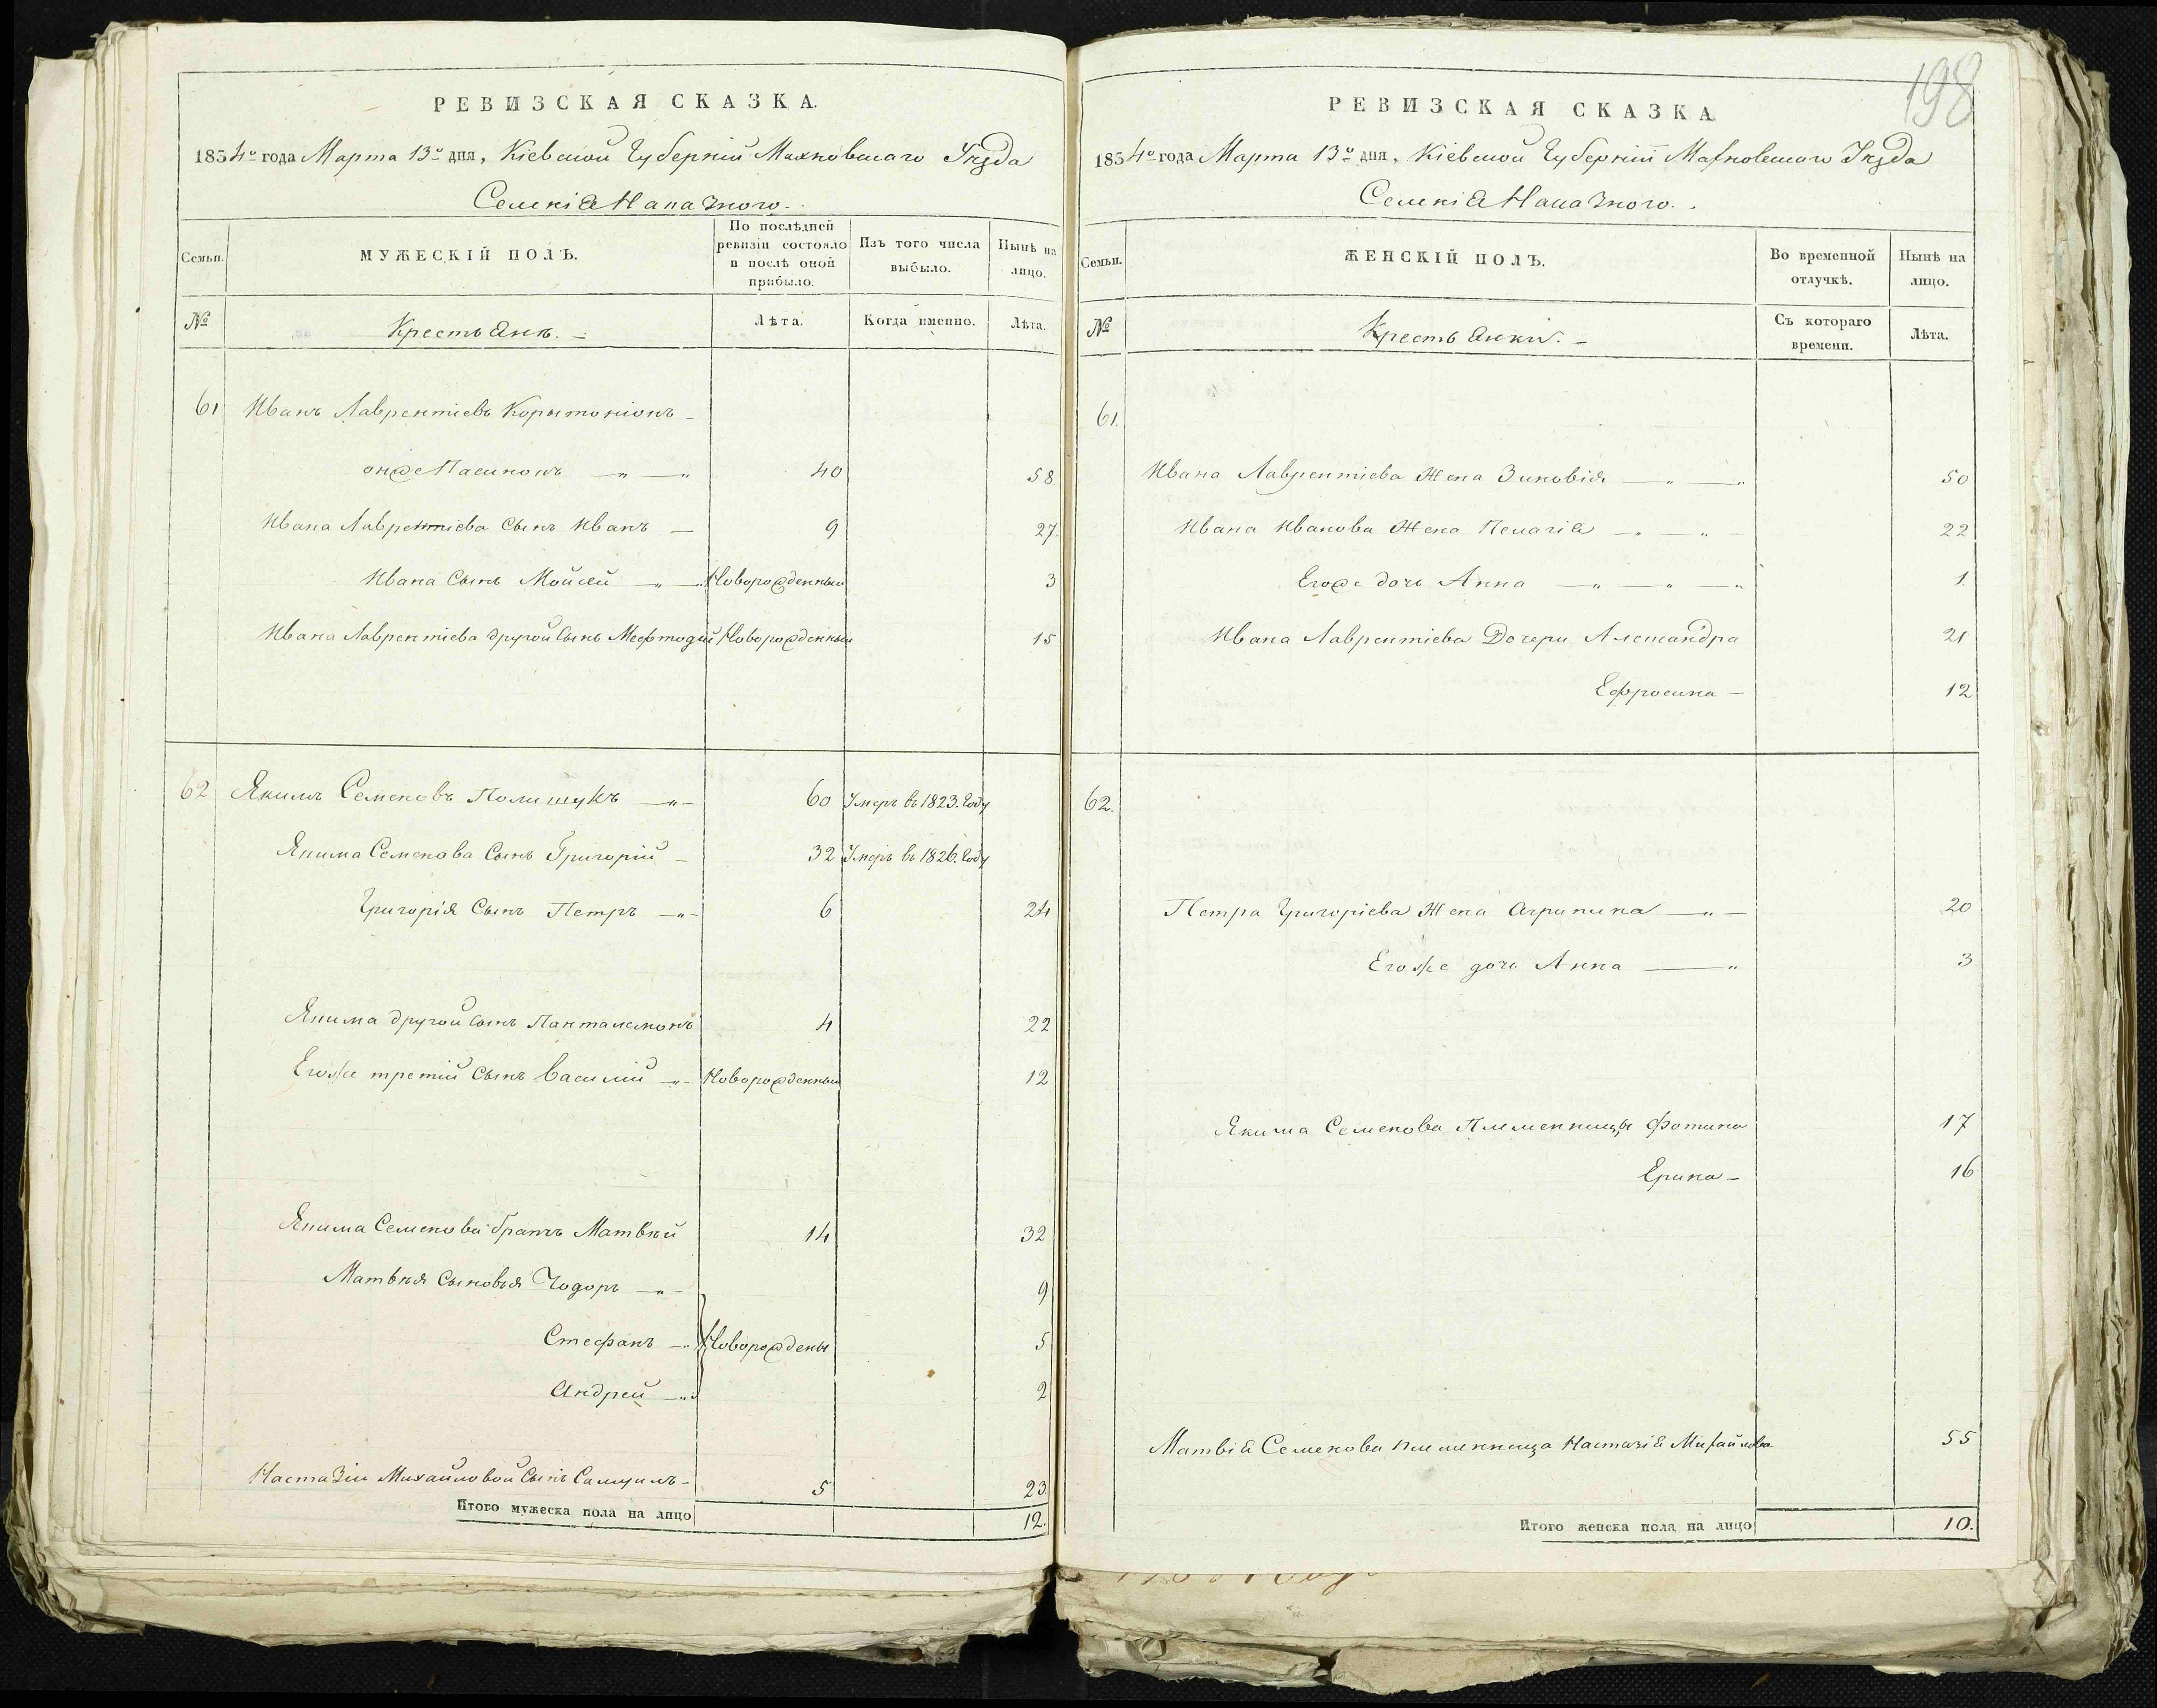 198
РЕВИЗСКАЯ СКАЗКА.
1834го года Марта 13го дня, Кіевской Губерніи Махновскаго Уѣзда
Семьи.
МУЖЕСКІЙ ПОЛЪ.
По послѣдней ревизіи состояло и послѣ оной прибыло.
Изъ того числа выбыло.
Нынѣ на лицо.
№
Крестьянъ.
Лѣта.
Когда именно.
Лѣта.
61 Иванъ Лаврентіевъ
онже Пасишонъ 40 58
Ивана Лаврентіева Сынъ Иванъ 9 27.
Ивана Сынъ Мойсей Новорожденный 3
Ивана Лаврентіева другой Сынъ Мефтодій Новорожденный 15
62 Якимъ Семеновъ Полищукъ 60 Умеръ въ 1823. Году
Якима Семенова Сынъ Григорій 32 Умеръ въ 1826. Году
Григорія Сынъ Петръ 6 24
Якима другой сынъ Панталемонъ 4 22
Егоже третій Сынъ Василій Новорожденный 12
Якима Семенова братъ Матвѣй 14 32
Матвѣя Сыновья Ѳодоръ 9
Стефанъ Новорождены 5
Андрей 2
Настазіи Михайловой Сынъ Самуилъ 5 23.
Итого мужеска пола на лицо 12.
РЕВИЗСКАЯ СКАЗКА
1834го года Марта 13го дня, Кіевской Губерніи Махновскаго Уѣзда
Семьи.
ЖЕНСКІЙ ПОЛЪ.
Во временной отлучкѣ.
Нынѣ на лицо.
№
Крестьянки.
Съ котораго времени.
Лѣта.
61.
Ивана Лаврентіева Жена Зиновія 50
Ивана Иванова Жена Пелагія 22
Егоже дочь Анна 1.
Ивана Лаврентіева Дочери Александра 21
Ефросина 12
62.
Петра Григоріева Жена Агрипина 20
Егоже дочь Анна 3
Якима Семенова Племенницы Фотина 17
Ерина 16
Матвія Семенова племенница Настазія Михайлова 55
Итого женска пола на лицо 10.